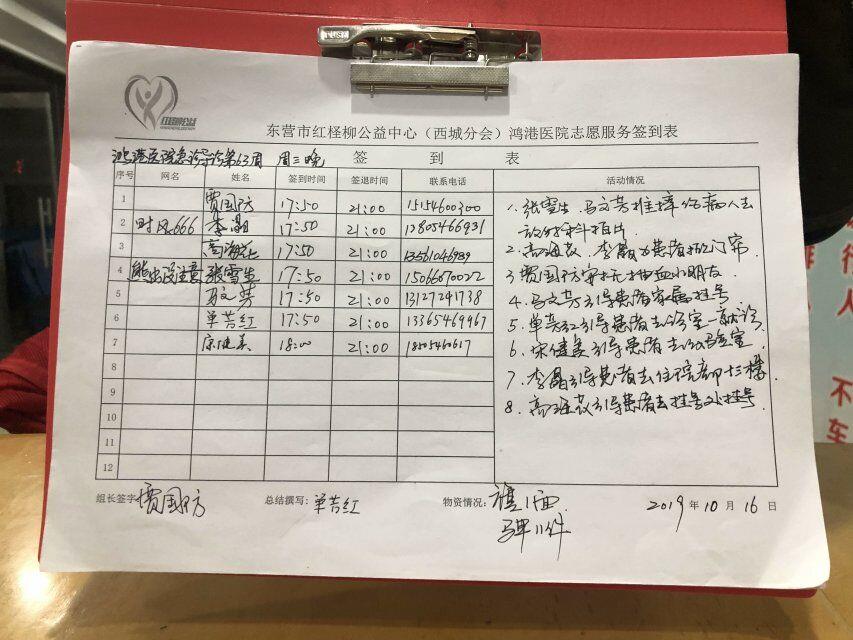 红柽柳公益
东营市红柽柳公益中心（西城分会）鸿港医院志愿服务签到表
鸿港医院急诊导诊第63周 周三晚 签 到 表
序号 网名 姓名 签到时间 签退时间 联系电话 活动情况
1 贾国防 17:50 21:00 15154600300
2 时风666 李晶 17:50 21:00 13805466931
3 17:50 21:00 13561046939
4 张雪生 17:50 21:00 15066670022
5 马文芳 17:50 21:00 13127291738
6 单苦红 17:50 21:00 13365469967
7 宋健美 18:00 21:00 18505460617
8
9
10
11
12
1、张雪生、马文芳推摔伤病人去
放射科拍片
2、李晶为患者掀门帘
3 贾国防安抚抽血小朋友
4、马文芳引导患者家属挂号
5、引导患者去诊室就诊
6、宋健美引导患者去
7、李晶引导患者去住院部十三楼
8、引导患者去挂号处挂号
组长签字 贾国防 总结撰写：单苦红 物资情况： 旗1面
马甲11件
2019 年 10 月 16 日
行
人
不
车